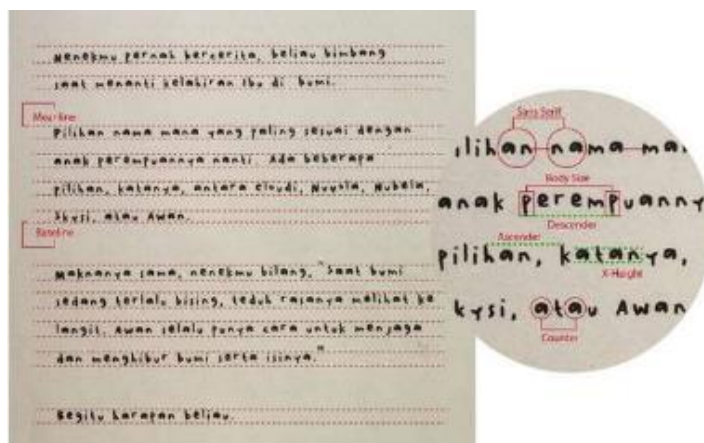 Nenekmu pernah bercerita, beliau bimbang
saat menanti kelahiran Ibu di bumi.
Mean line
Pilihan nama mana yang paling sesuai dengan
anak perempuannya nanti. Ada beberapa
pilihan, katanya, antara Cloudi, Nuvola, Nubela,
Skysi, atau Awan.
Baseline
Maknanya sama, nenekmu bilang, "Saat bumi
sedang terlalu bising, teduh rasanya melihat ke
langit. Awan selalu punya cara untuk menjaga
dan menghibur bumi serta isinya."
Begitu harapan beliau.
Sans Serif
ilihan nama ma
Body Size
anak perempuanny
Descender
Ascender
pilihan, katanya,
X-Height
kysi, atau Awan
Counter